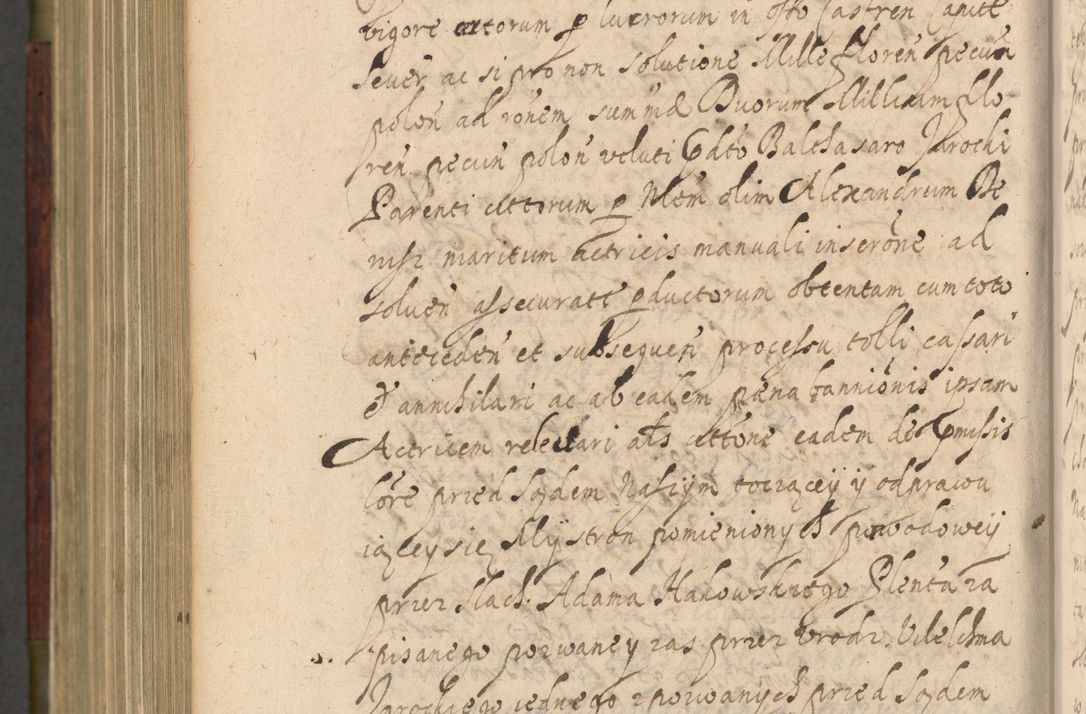 vigore actorum p lucrorum in offo Castren Capitt
Sever ac si pro non solutione Mille floren pecun
polon ad ronem summæ Duorum Millium flo
ren pecun polon veluti Gdto Balthasaro Jarocki
Parenti actorum p Nlem olim Alexandrum Be
nisz maritum actricis manuali inscrōne ad
solven assecurate pductorum obtentam cum toto
anteceden et subsequen processu tolli cassari
et annihilari ac ab eadem pæna bannionis ipsam
Actricem relevari als actione eadem de pmissis
lōre przed Sądem Naszym toczącey y odprawu
iącey się My stron pomienionych powodowey
przez Slach. Adama Hanowskiego Plenta za
pisanego pozwaney zas przez Urodz. Vilelchma
Jarockiego iednego z pozwanych przed Sądem